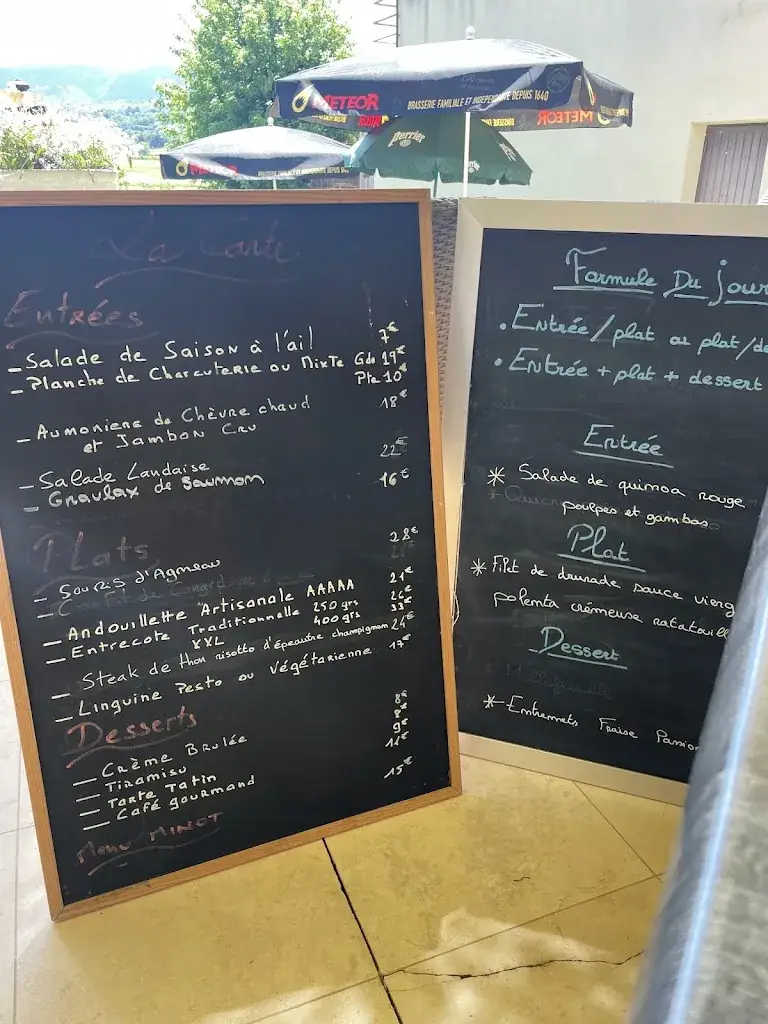 METEOR
BRASSERIE FAMILIALE ET INDEPENDANTE DEPUIS 1640
METEOR
perrier
METEOR
La Carte
Entrées
- Salade de Saison à l'ail 7€
- Planche de Charcuterie ou Mixte Gde 19€
Pte 10€
- Aumoniere de Chèvre chaud 18€
et Jambon Cru
- Salade Landaise 22€
- Gravlax de Saumon 16€
Plats
- Souris d'Agneau 28€
- Andouillette Artisanale AAAAA 21€
- Entrecote Traditionnelle 250 grs 26€
XXL 400grs 33€
- Steak de thon risotto d'épeautre champignon 24€
- Linguine Pesto ou Végétarienne 17€
Desserts
- Crème Brulée 8€
- Tiramisu 8€
- Tarte Tatin 9€
- Café gourmand 11€
Menu MINOT 15€
Formule Du jour
• Entrée/plat ou plat/de
• Entrée + plat + dessert
Entrée
* Salade de quinoa rouge
poulpes et gambas
Plat
* Filet de daurade sauce vierg
polenta crémeuse ratatouill
Dessert
* Entremets Fraise Passion